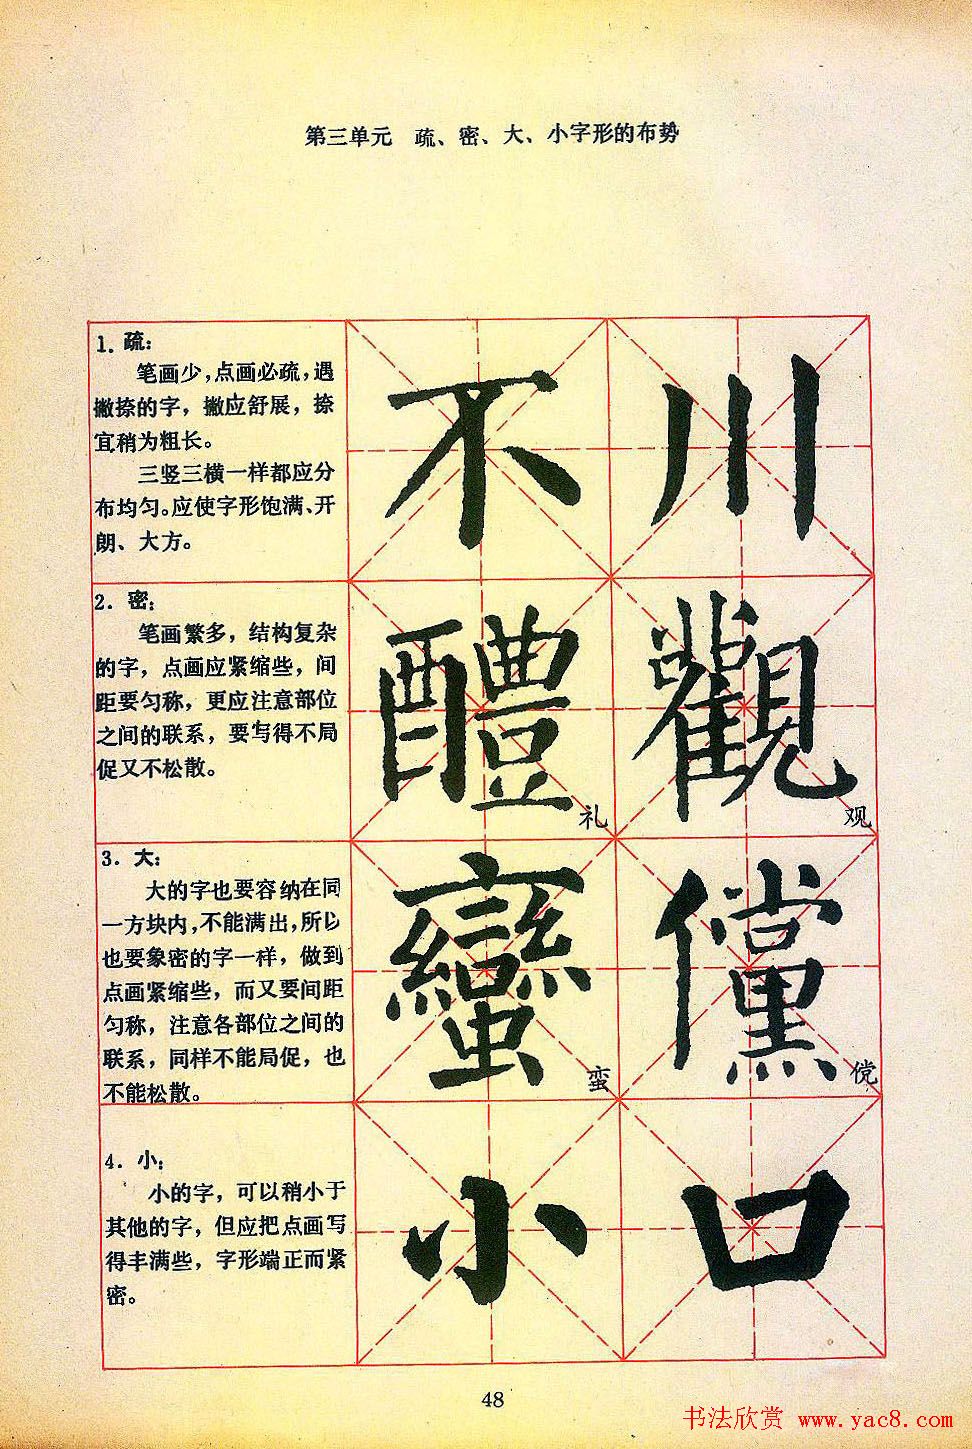 第三单元 疏、密、大、小字形的布势
1. 疏：
笔画少，点画必疏，遇
撇捺的字，撇应舒展，捺
宜稍为粗长。
三竖三横一样都应分
布均匀。应使字形饱满、开
朗、大方。
不 川
2. 密：
笔画繁多，结构复杂
的字，点画应紧缩些，间
距要匀称，更应注意部位
之间的联系，要写得不局
促又不松散。
醴 觀
礼 观
3. 大：
大的字也要容纳在同
一方块内，不能满出，所以
也要象密的字一样，做到
点画紧缩些，而又要间距
匀称，注意各部位之间的
联系，同样不能局促，也
不能松散。
蠻 儻
蛮 傥
4. 小：
小的字，可以稍小于
其他的字，但应把点画写
得丰满些，字形端正而紧
密。
小 口
48
书法欣赏 www.yac8.com